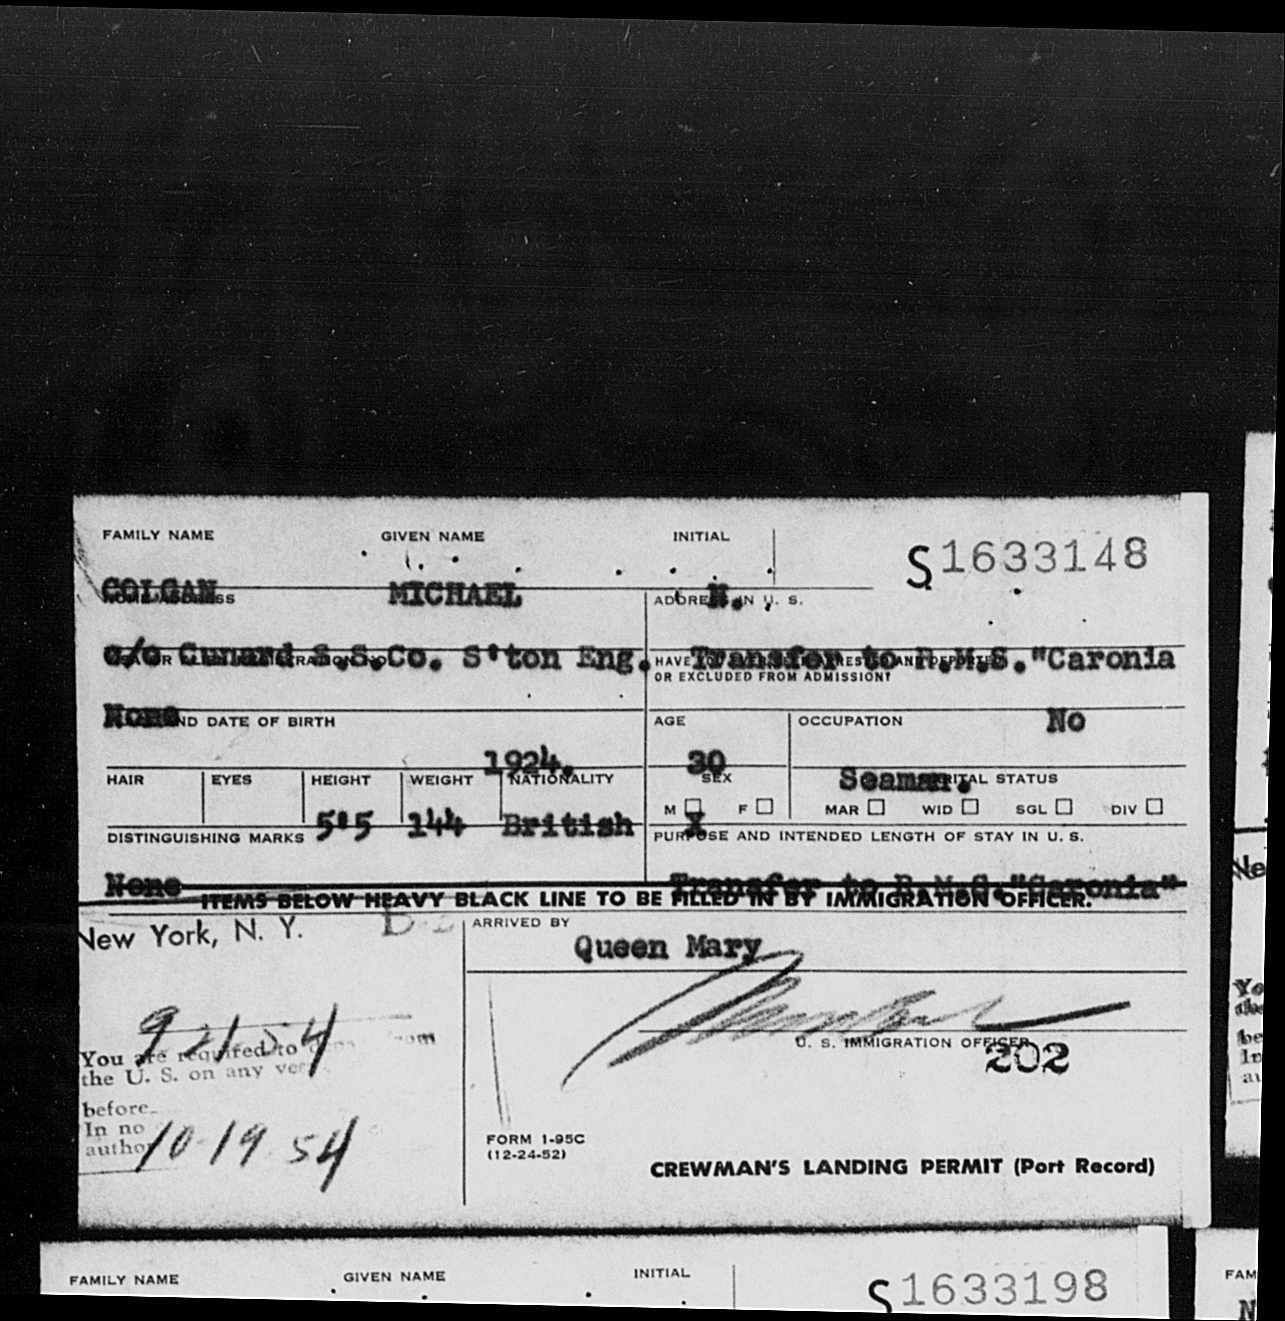 FAMILY NAME GIVEN NAME INITIAL
S1633148
COLGAN MICHAEL M.
HOME ADDRESS ADDRESS IN U. S.
c/o Cunard S.S.Co. S'ton Eng. Transfer to R.M.S."Caronia
HAVE
OR EXCLUDED FROM ADMISSION?
None No
AND DATE OF BIRTH AGE OCCUPATION
1924. 30 Seaman.
HAIR EYES HEIGHT WEIGHT NATIONALITY SEX MARITAL STATUS
M F MAR WID SGL DIV
5'5 144 British X
DISTINGUISHING MARKS PURPOSE AND INTENDED LENGTH OF STAY IN U. S.
None Transfer to R.M.S."Caronia"
ITEMS BELOW HEAVY BLACK LINE TO BE FILLED IN BY IMMIGRATION OFFICER.
New York, N. Y. ARRIVED BY
Queen Mary
9 21 54
You are required to
the U. S. on any
U. S. IMMIGRATION OFFICER
202
before
In no
10-19 54
FORM 1-95C
(12-24-52)
CREWMAN'S LANDING PERMIT (Port Record)
FAMILY NAME GIVEN NAME INITIAL
S1633198